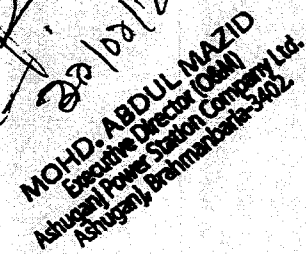 MOHD. ABDUL MAZID
Executive Director (O&M)
Ashuganj Power Station Company Ltd.
Ashuganj, Brahmanbaria-3402.